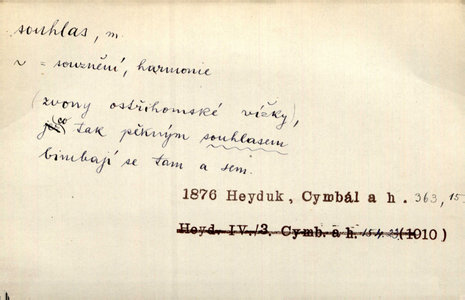 souhlas, m.
~ = souznění, harmonie
(zvony ostřihomské vížky),
co tak pěkným souhlasem
bimbají se tam a sem.
1876 Heyduk, Cymbál a h. 363, 15
Heyd. IV./3, Cymb. a h. (1010)